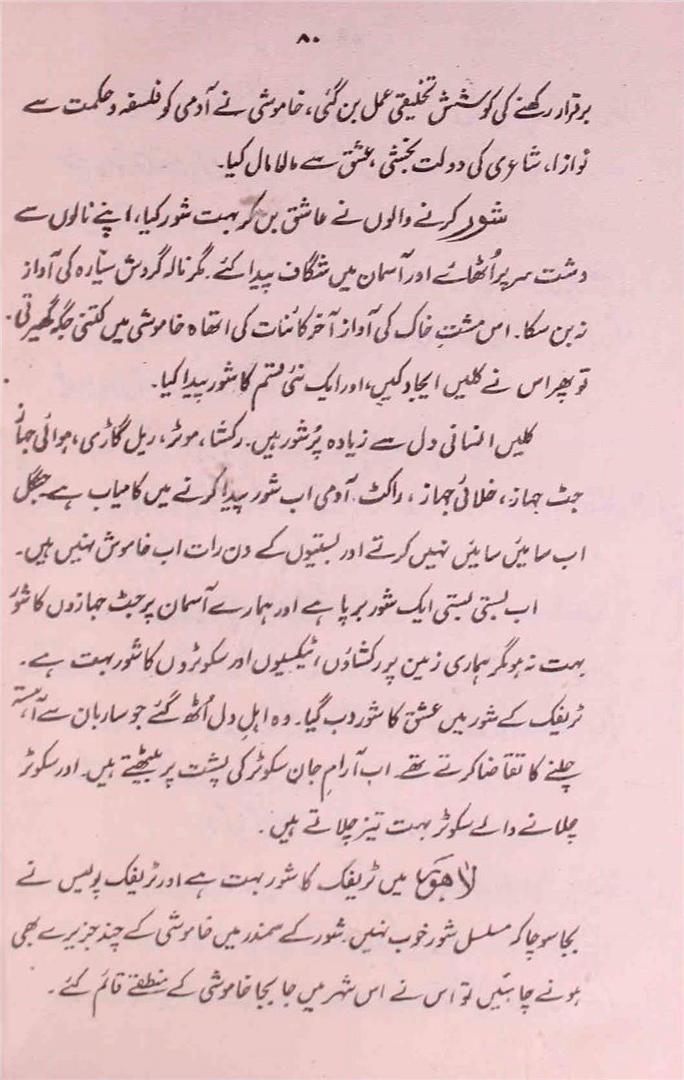 ۸۰
برقرار رکھنے کی کوشش تخلیقی عمل بن گئی، خاموشی نے آدمی کو فلسفہ و حکمت سے
نوازا، شاعری کی دولت بخشی، عشق سے مالا مال کیا۔
شور کرنے والوں نے عاشق بن کر بہت شور کیا، اپنے نالوں سے
دشت سر پر اُٹھائے اور آسمان میں شگاف پیدا کئے۔ مگر نالہ گردش سیّارہ کی آواز
نہ بن سکا۔ اس مشتِ خاک کی آواز آخر کائنات کی اتھاہ خاموشی میں کتنی جگہ گھیرتی۔
تو پھر اس نے کلیں ایجاد کیں، اور ایک نئی قسم کا شور پیدا کیا۔
کلیں انسانی دل سے زیادہ پُرشور ہیں۔ رکشا، موٹر، ریل گاڑی، ہوائی جہاز
جٹ جہاز، خلائی جہاز، راکٹ۔ آدمی اب شور پیدا کرنے میں کامیاب ہے۔ جنگل
اب سائیں سائیں نہیں کرتے اور بستیوں کے دن رات اب خاموش نہیں ہیں۔
اب بستی بستی ایک شور برپا ہے اور ہمارے آسمان پر جٹ جہازوں کا شور
بہت نہ ہو مگر ہماری زمین پر رکشاؤں، ٹیکسیوں اور سکوٹروں کا شور بہت ہے۔
ٹریفک کے شور میں عشق کا شور دب گیا۔ وہ اہلِ دل اُٹھ گئے جو ساربان سے آہستہ
چلنے کا تقاضا کرتے تھے۔ اب آرامِ جان سکوٹر کی پشت پر بیٹھتے ہیں۔ اور سکوٹر
چلانے والے سکوٹر بہت تیز چلاتے ہیں۔
لاہور میں ٹریفک کا شور بہت ہے اور ٹریفک پولیس نے
بجا سوچا کہ مسلسل شور خوب نہیں۔ شور کے سمندر میں خاموشی کے چند جزیرے بھی
ہونے چاہئیں تو اس نے اس شہر میں جا بجا خاموشی کے منطقے قائم کئے۔